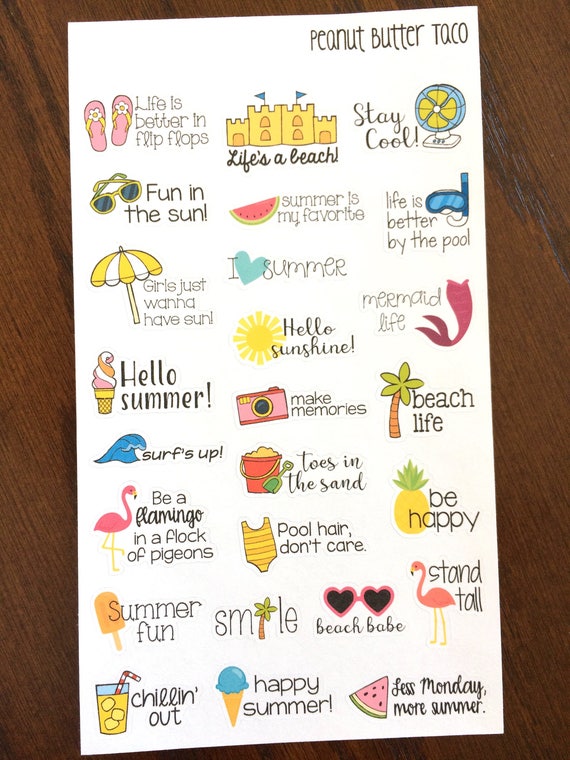 Peanut Butter Taco
Life is
better in
flip flops
Life's a beach!
Stay
Cool!
Fun in
the sun!
summer is
my favorite
life is
better
by the pool
Girls just
wanna
have sun!
I summer
mermaid
life
Hello
sunshine!
Hello
summer!
make
memories
beach
life
surf's up!
toes in
the sand
Be a
flamingo
in a flock
of pigeons
Pool hair,
don't care.
be
happy
Summer
fun
smile
beach babe
stand
tall
chillin'
out
happy
summer!
Less Monday,
more summer.